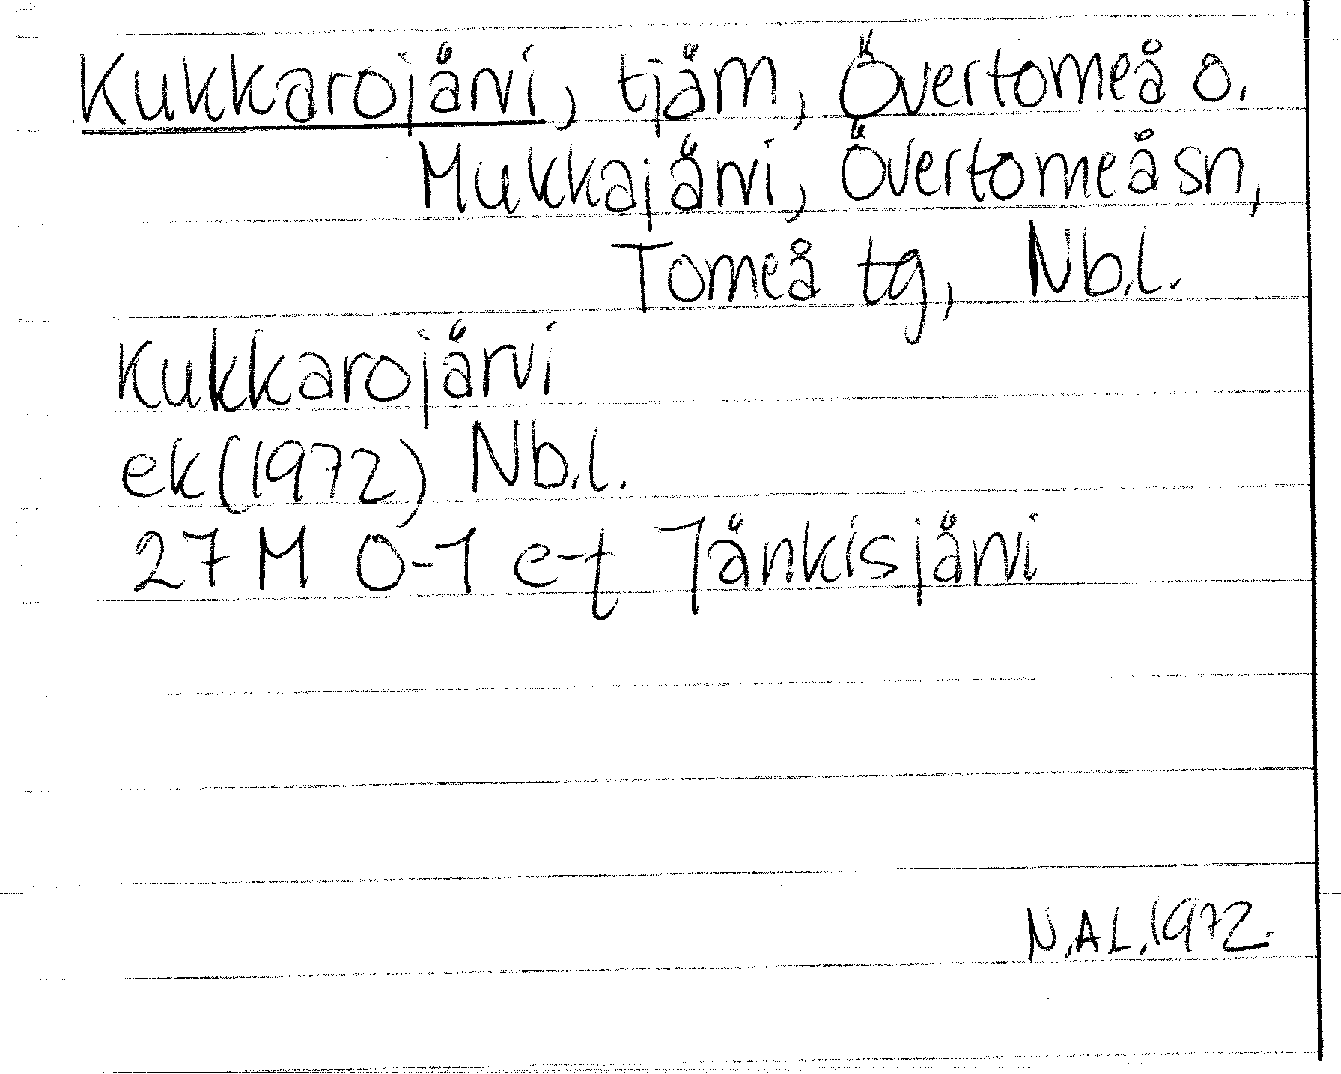 Kukkarojärvi, tjärn, Övertorneå o.
Mukkajärvi, Övertorneå sn,
Torneå tg, Nb.l.
Kukkarojärvi
ek (1972) Nb.l.
27 M 0-1 e-f Jänkisjärvi
N.A.L. 1972.